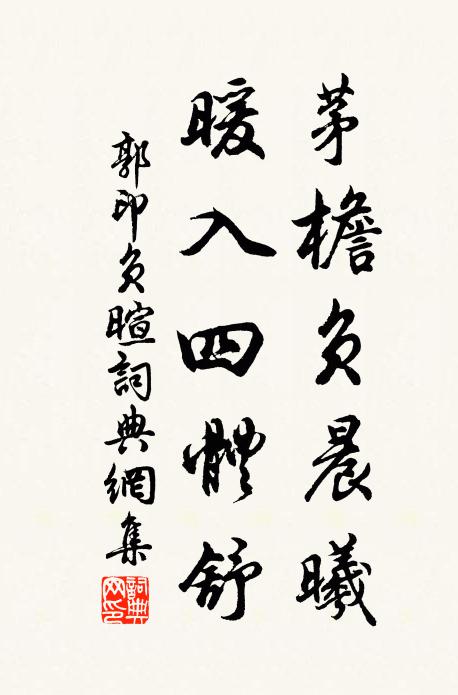 茅檐负晨曦
暖入四體舒
郭印负暄詞典網集
詞典
网印